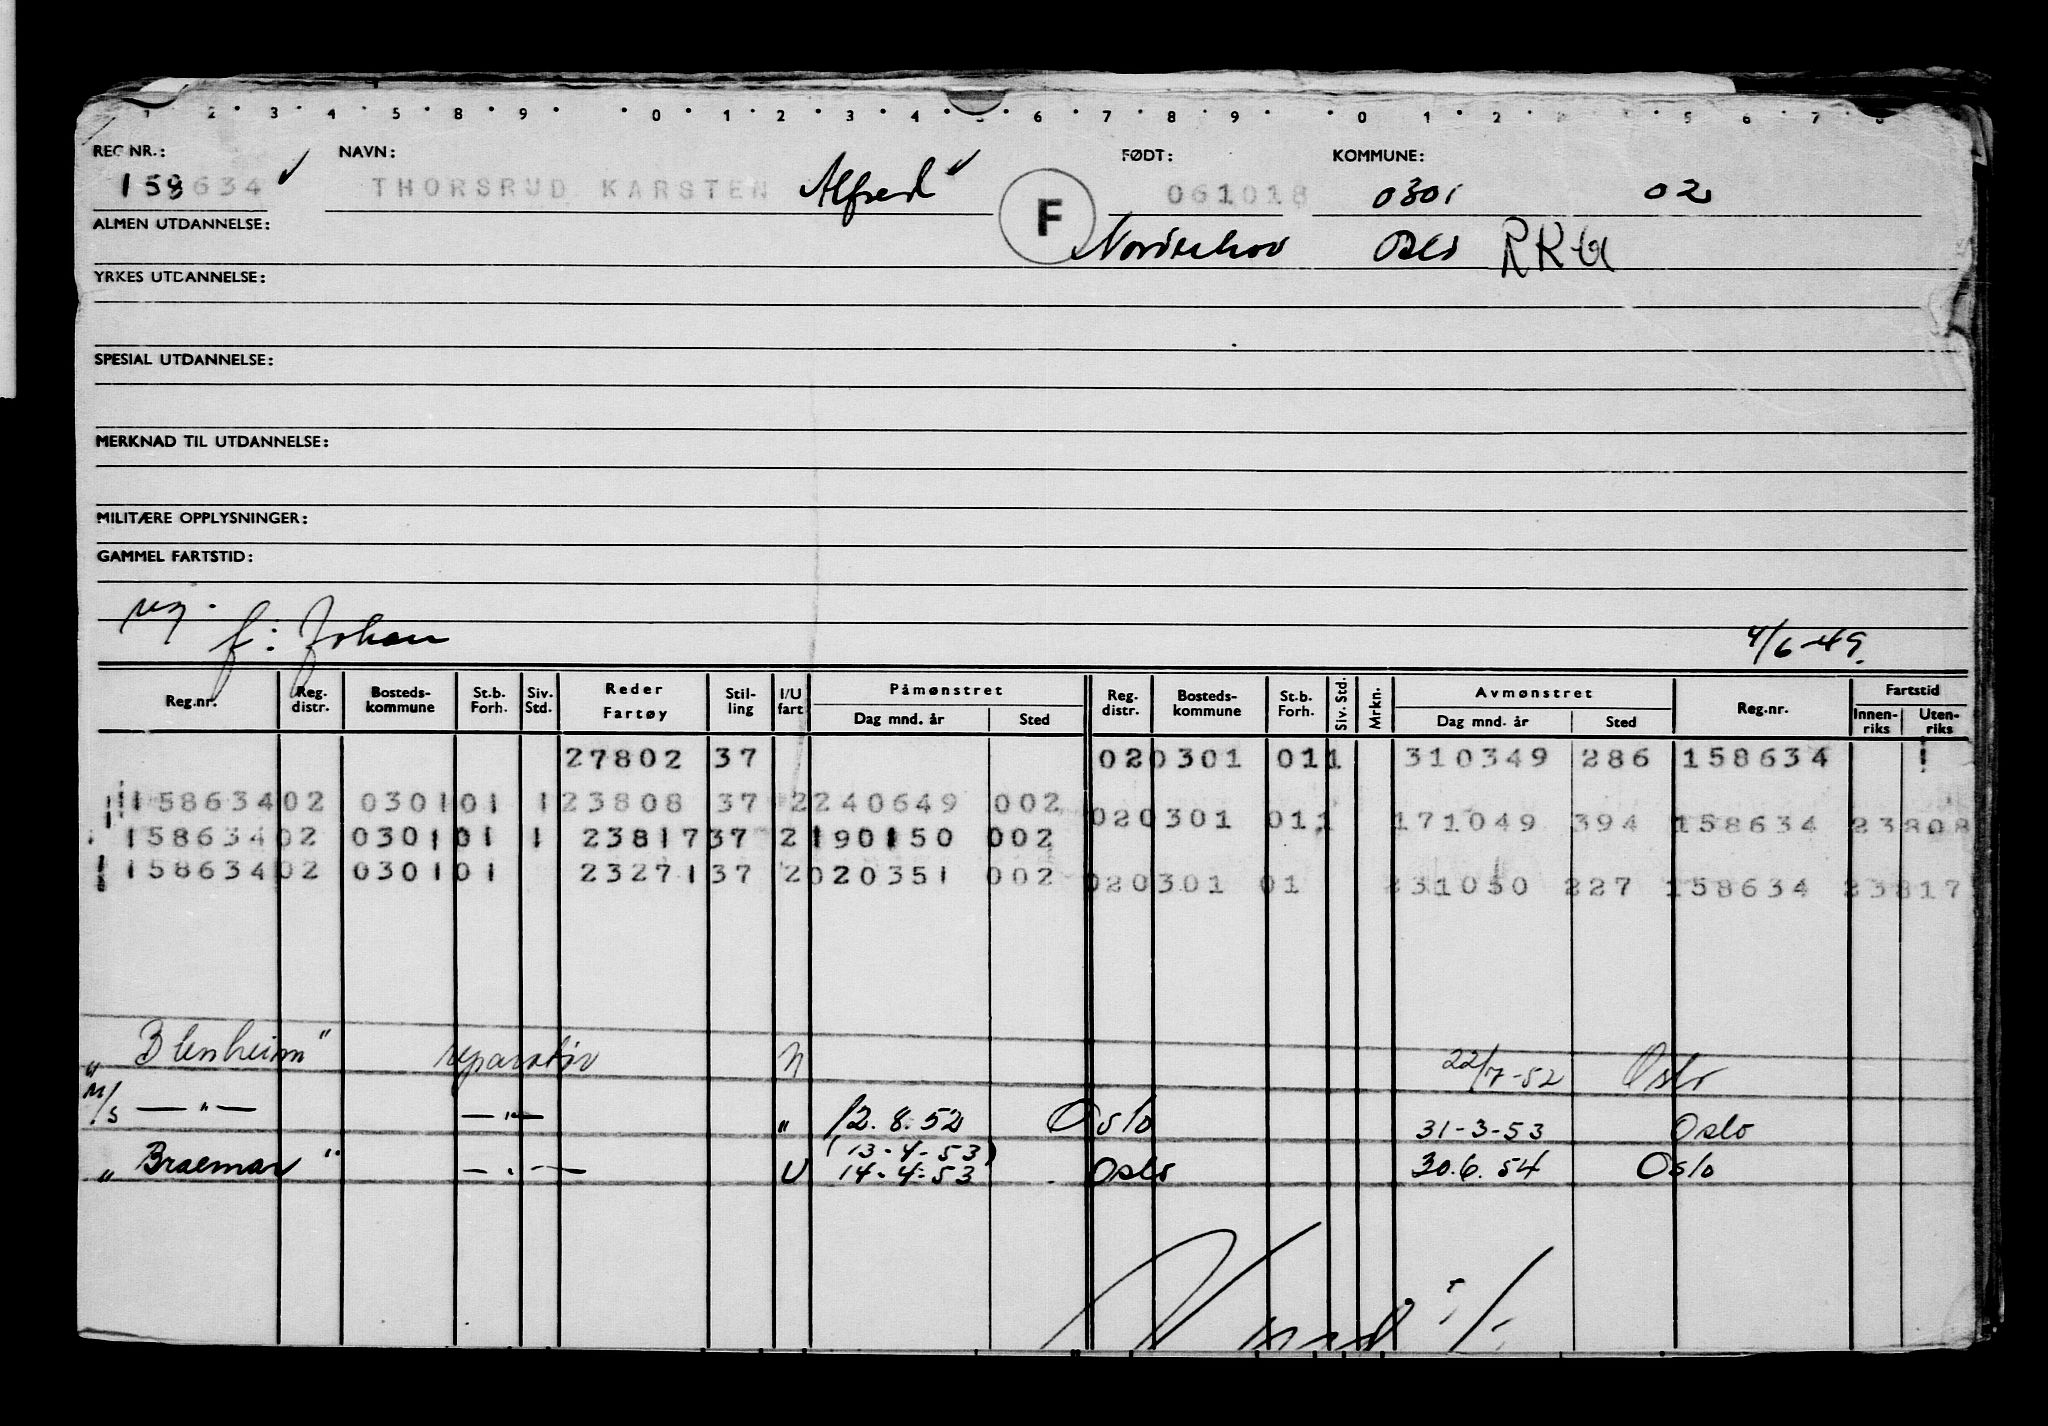 1 2 3 4 5 8 9 0 1 2 3 4 5 6 7 8 9 0 1 2 5 6 7 8
REG NR.: NAVN: FØDT: KOMMUNE:
158634 THORSRUD KARSTEN Alfred 061018 0301 02
ALMEN UTDANNELSE: F Norderhov Oslo
YRKES UTDANNELSE:
SPESIAL UTDANNELSE:
MERKNAD TIL UTDANNELSE:
MILITÆRE OPPLYSNINGER:
GAMMEL FARTSTID:
f: Johan 4/6-49.
Reg.nr. Reg. distr. Bosteds-kommune St.b. Forh. Siv. Std. Reder Fartøy Stil-ling I/U fart Påmønstret Dag mnd. år Sted Reg. distr. Bosteds-kommune St.b. Forh. Siv. Std. Mrkn. Avmønstret Dag mnd. år Sted Reg.nr. Fartstid Innen-riks Uten-riks
27802 37 02 0301 01 1 310349 286 158634
158634 02 0301 01 1 23808 37 2 240649 002 02 0301 01 1 171049 394 158634 23808
158634 02 0301 01 1 23817 37 2 190150 002
158634 02 0301 01 23271 37 2 020351 002 02 0301 01 231050 227 158634 23817
" Blenheim" reparatør 22/7-52 Oslo
M/S — " — — " — " 12.8.52 Oslo 31-3-53 Oslo
(13-4-53)
" Braemar" — " — U 14-4-53 Oslo 30.6.54 Oslo